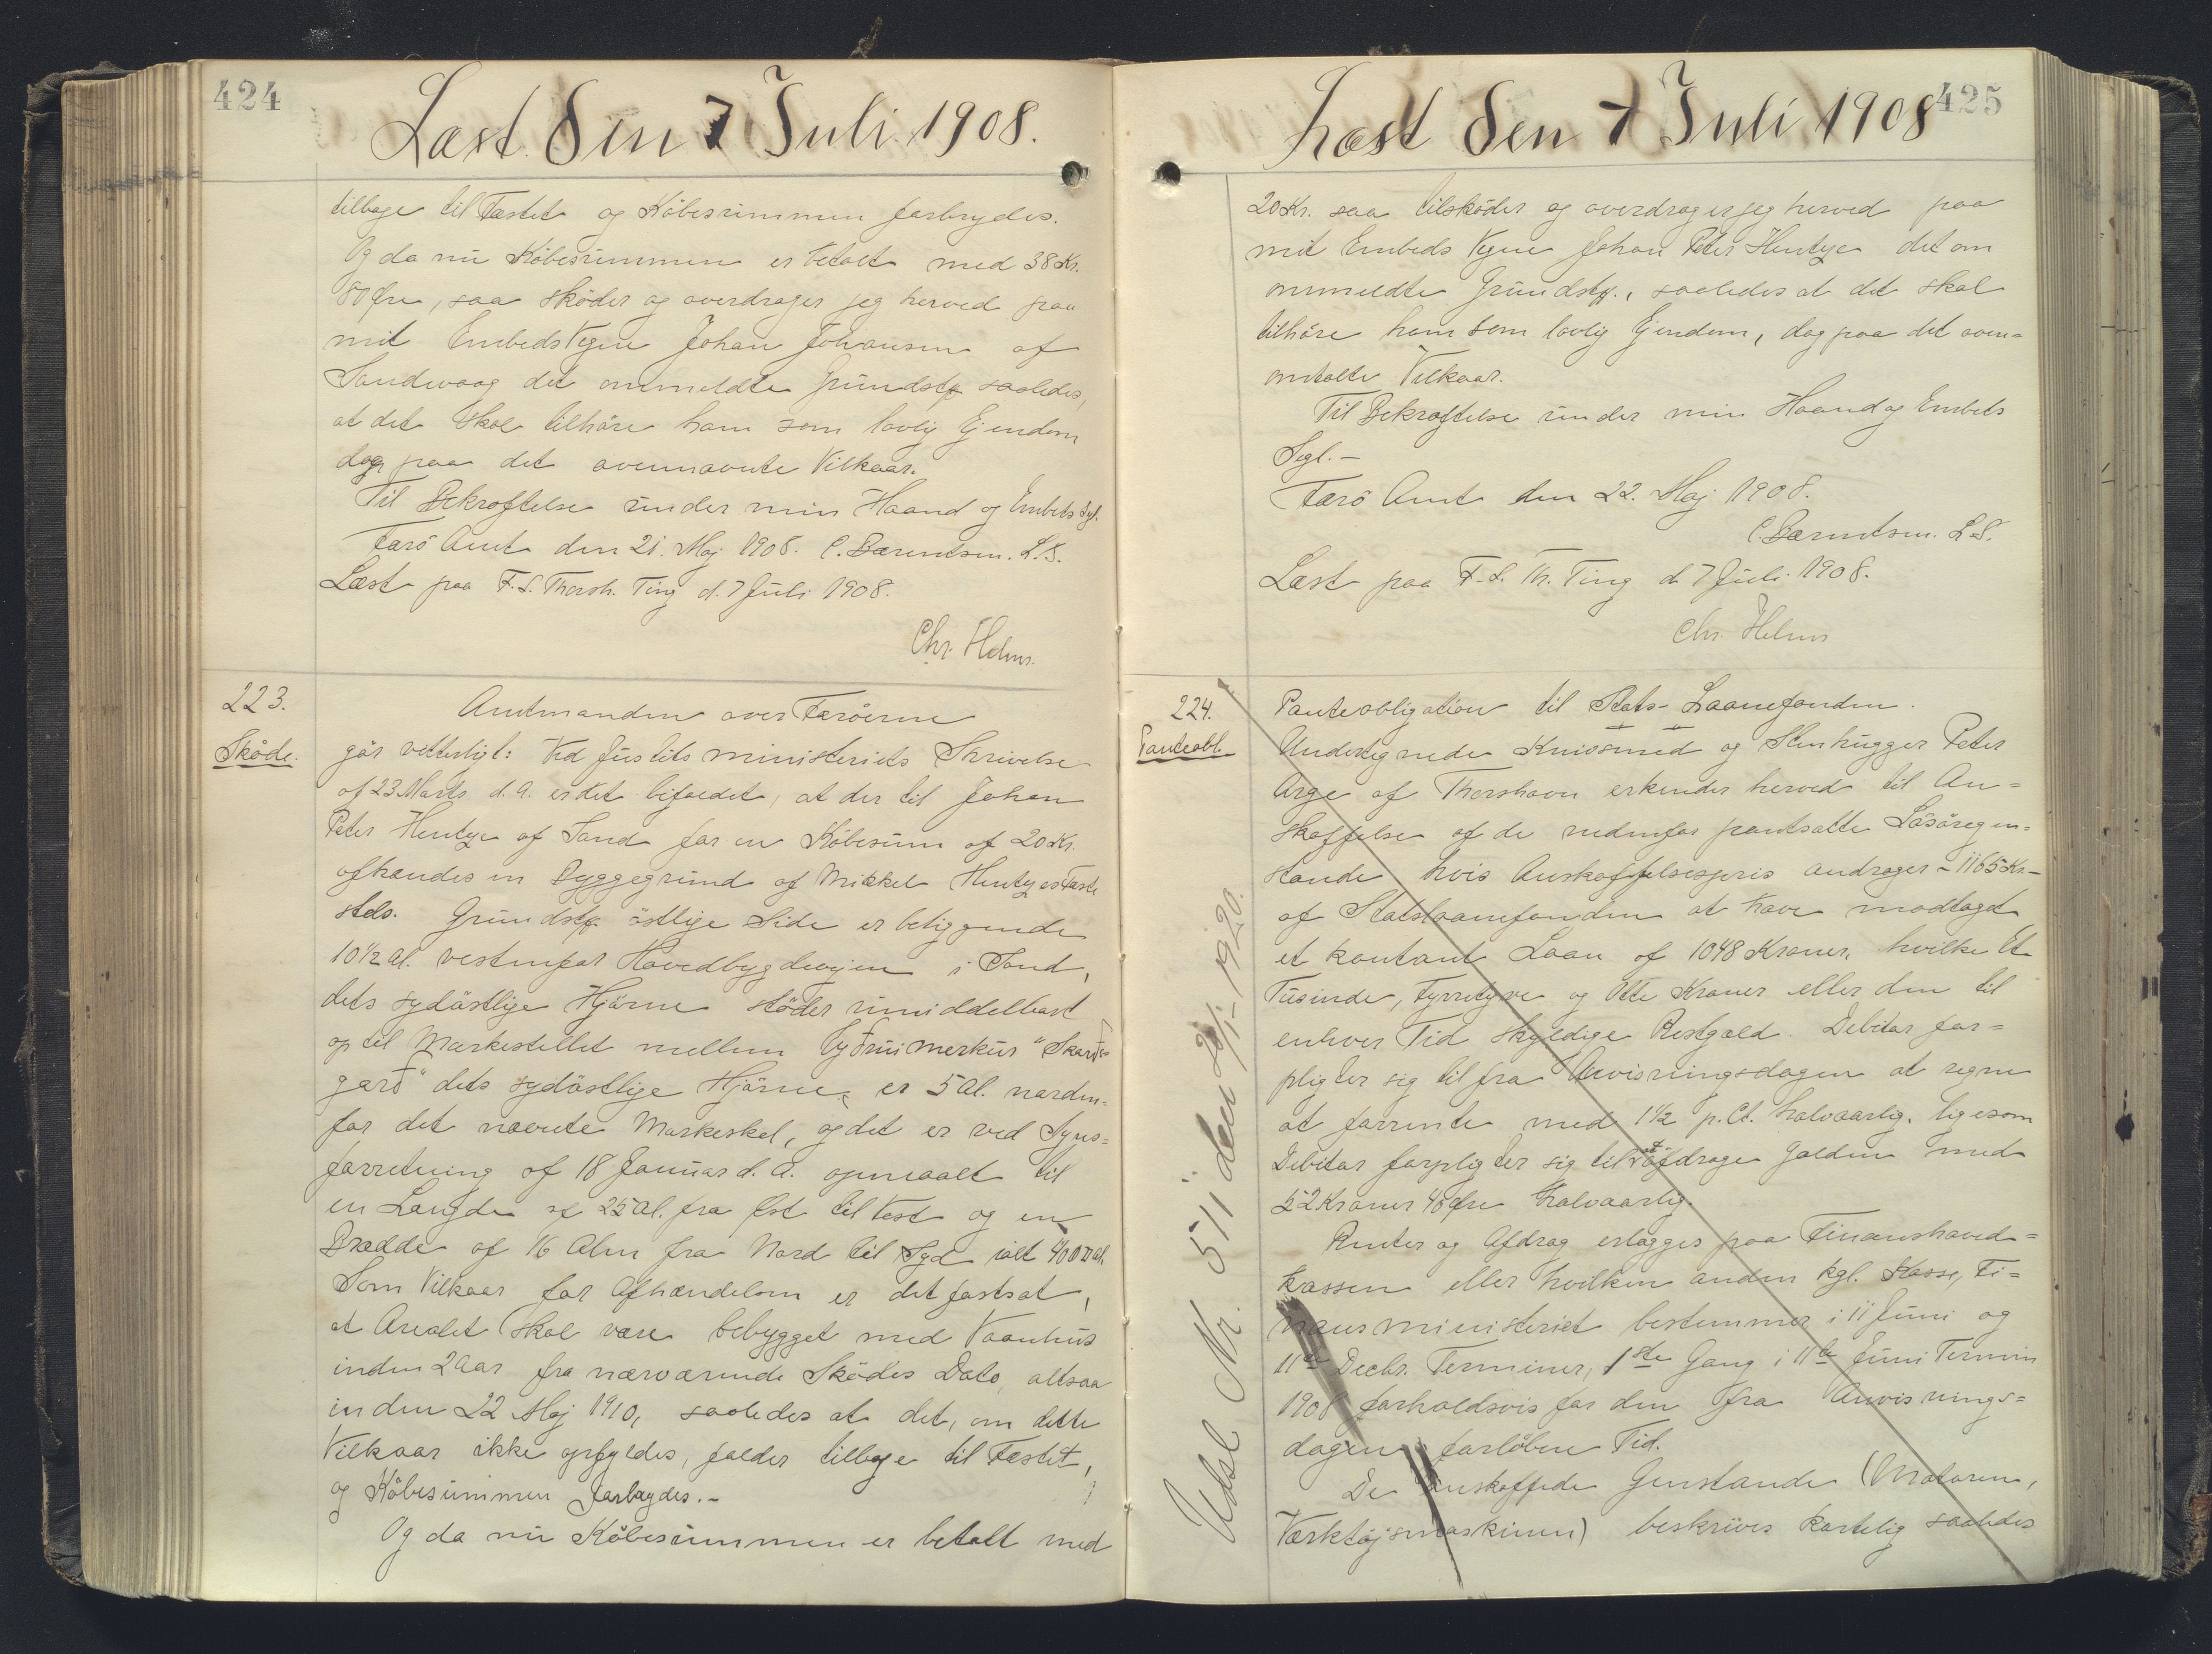 424
Læst den 7 Juli 1908.
tilbage til Fæstet og Köbesummen forbrydes.
Og da nu Köbesummen er betalt med 38 Kr.
80 Øre, saa sköder og overdrager jeg herved paa
mit Embeds Vegne Johan Johansen af
Sandvaag det ommeldte Grundstk saaledes,
at det skal tilhöre ham som lovlig Ejendom
dog paa det ovennævnte Vilkaar.
Til Bekræftelse under min Haand og Embets Sgl.
Færö Amt den 21. Maj 1908. C. Bærentsen. L.S.
Læst paa F. S. Thorsh. Ting d. 7 Juli 1908.
Chr. Helms.
223.
Sköde.
Amtmanden over Færöerne
gör vetterligt: Ved Justitsministeriets Skrivelse
af 23 Marts d. A. er det bifaldet, at der til Johan
Peter Hentze af Sand for en Köbesum af 20 Kr.
afhændes en Byggegrund af Mikkel Hentzes Fæste
steds. Grundstk. östlige Side er beliggende
10 1/2 Al. vestenfor Hovedbygdevejen i Sand,
dets sydöstlige Hjörne stöder umiddelbart
op til Markestellet mellem Oyðrui merkur "Skarðs=
garð" dets sydöstlige Hjörne, er 5 Al. norden=
for det nævnte Markeskel, og det er ved Syns=
forretning af 18 Januar d. A. opmaalt til
en Længde af 25 Al. fra Øst til Vest og en
Bredde af 16 Alen fra Nord til Syd ialt 400 □ Al.
Som Vilkaar for Afhændelsen er det fastsat,
at Arealet skal være bebygget med Vaanhus
inden 2 Aar fra nærværende Skødes Dato, altsaa
inden 22 Maj 1910, saaledes at det, om dette
Vilkaar ikke opfyldes, falder tilbage til Fæstet,
og Köbesummen forbrydes.-
Og da nu Köbesummen er betalt med
425
Læst den 7 Juli 1908
20 Kr. saa tilsköder og overdrager jeg herved paa
mit Embeds Vegne Johan Peter Hentze det om
ommeldte Grundstk., saaledes at det skal
tilhöre ham som lovlig Ejendom, dog paa det oven=
omtalte Vilkaar.
Til Bekræftelse under min Haand og Embets
Segl.-
Færö Amt den 22. Maj 1908.
C. Bærentsen. L.S.
Læst paa F. S. Th. Ting d. 7 Juli 1908.
Chr. Helms
224.
Panteobl.
Panteobligation til Stats-Laanefonden.
Undertegnede Knivsmed og Stenhugger Peter
Arge af Thorshavn erkender herved til An=
skaffelse af de nedenfor pantsatte Lösöregen=
stande hvis Anskaffelsespris andrager - 1165 Kr.-
af Statslaanefonden at have modtaget
et kontant Laan af 1048 Kroner, hvilke Et
Tusinde, Fyrretyve og Otte Kroner eller den til
enhver Tid skyldige Restgæld. Debitor for=
pligter sig til fra Anvisningsdagen at regne
at forrente med 1 1/2 p. Ct. halvaarlig. ligesom
Debitor forpligter sig til at afdrage Gælden med
52 Kroner 40 Øre halvaarlig.
Renter og Afdrag erlægges paa Finanshoved=
kassen eller hvilken anden kgl. Kasse, Fi=
nansministeriet bestemmer i 11 Juni og
11te Decbr. Terminer, 1ste Gang i 11te Juni Termin
1908 forholdsvis for den fra Anvisnings=
dagen forløbne Tid.
De anskaffede Genstande (Motoren,
Værktöjsmaskinen) beskrives kortelig saaledes
Udsl Nr. 511 den 20/1-1920.